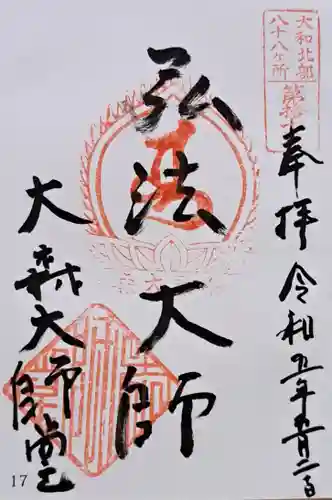 大和北部
八十八ヶ所
第拾
奉拝
令和五年五月二日
弘法大師
大森大師堂
17